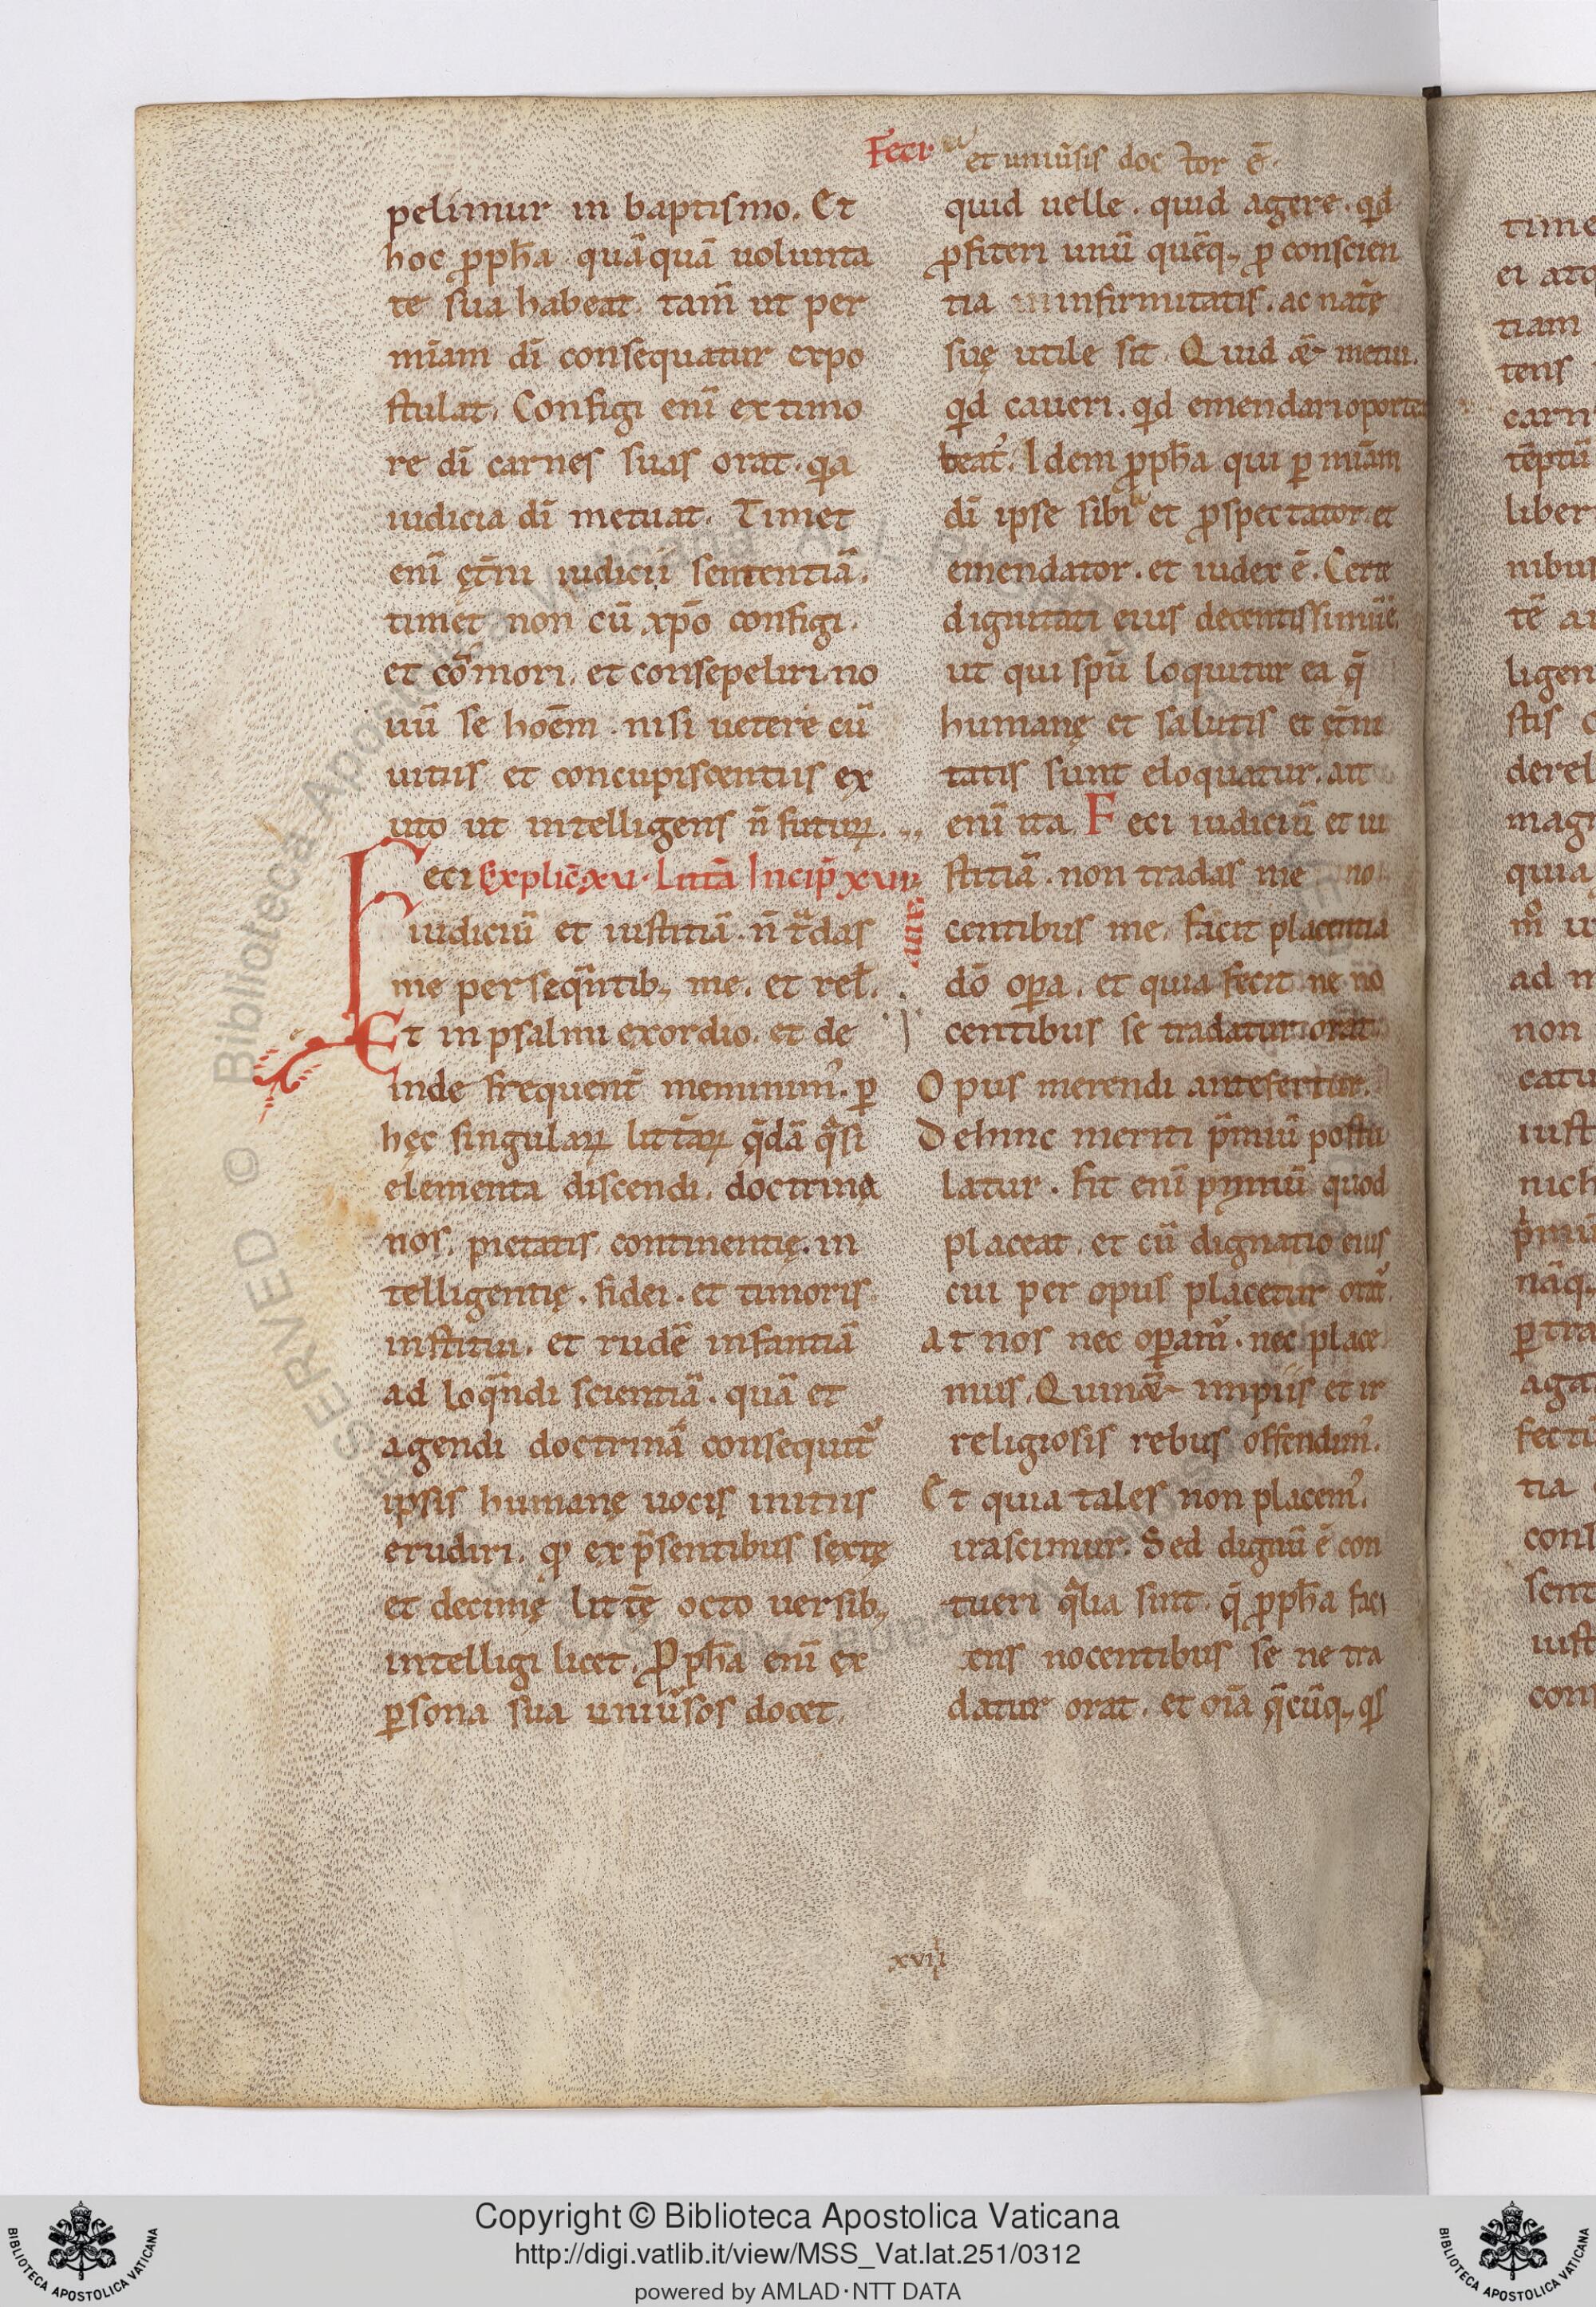 Feci
et uniūsis doctor ē.
pelimur in baptismo. Et
hoc ꝓph̄a quāquā uolunta
te sua habeat. tam̄ ut per
mīam dī consequatur expo
stulat. Configi eni͞ ex timo
re dī carnes suas orat. qͥa
iudicia dī metuat. Timet
eni͞ ęt̄ni iudicii sententiā.
timet non cū xp̄o configi.
et cōmori. et consepeliri. no
uū se hoēm. nisi uetere cū
uitiis et concupiscentiis ex
uto ut intelligens n̄ futuꝝ.
Feci Explic̄. xvi. Litt̄a Incip̄ xvii
am.
iudiciū et iustitiā. n̄ tᷓdas
me perseqūntib; me. et rel̄.
Et in psalmi exordio. et de
inde frequent̄ meminimꝰ. ꝑ
hęc singulaꝝ litt̄aꝝ q̄dā qᷓsi
elementa discendi. doctrinę
nos. pietatis. continentię. in
telligentię. fidei. et timoris
institui. et rudē infantiā
ad loqūndi scientiā. quā et
agendi doctrinā consequit᷑
ipsis humanę uocis initiis
erudiri. qͦ ex p̄sentibus sextę
et decimę litt̄ę octo uersib;
intelligi licet. Ꝓph̄a eni͞ ex
ꝑsona sua uniūsos docet.
quid uelle. quid agere. qͥd
ꝓfiteri unū quēq; ꝓ conscien
tia infirmitatis. ac nat̄ę
suę utile sit. Quid &̄ metui.
qͥd caueri. qͥd emendari oporteat
beat᷑. Idem ꝓph̄a qui ꝑ mīam
dī ipse sibi et ꝓspectator et
emendator. et iudex ē. Certe
dignitati eius decentissimū ē.
ut qui spū loquitur ea q̄
humanę et salutis et ęt̄ni
tatis sunt eloquatur. ait
eni͞ ita. Feci iudiciū et iu
stitiā. non tradas me no
centibus me. Facit placitia
dō oꝑa. et quia fecit ne no
centibus se tradatur orat.
Opus merendi antefertur.
Dehinc meriti p̄miū postu
latur. Fit eni͞ pͥmū quod
placeat. et cū dignatio eius
cui per opus placetur orat᷑.
At nos nec oꝑamꝰ. nec place
mus. Quin&̄ impiis et ir
religiosis rebus offendimꝰ.
Et quia tales non placemꝰ.
irascimur. Sed dignū ē con
tueri qᷓlia sint. q̄ ꝓph̄a faci
ens nocentibus se ne tra
datur orat. et oīa q̄cūq; qͥs
xvii
time
ei atq
tiam
tens
carn
tēptū
liber
nibus
tē a
ligen
stis
derel
magi
quia
m̊ u
ad n
non
catu
iust
nich
p̄miu
nāq
ꝑ tra
aga
fectu
tia
cons
sent
iust
con
Copyright © Biblioteca Apostolica Vaticana
http://digi.vatlib.it/view/MSS_Vat.lat.251/0312
powered by AMLAD·NTT DATA
BIBLIOTECA APOSTOLICA VATICANA
BIBLIOTECA APOSTOLICA VATICANA